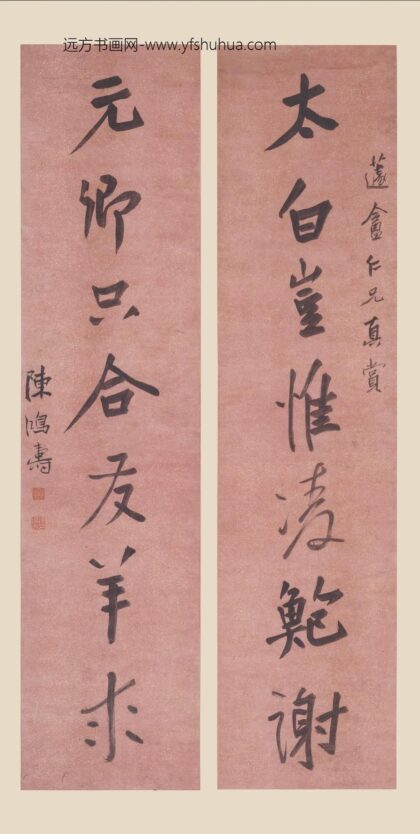 远方书画网-www.yfshuhua.com
太白豈惟凌鮑謝
蘧盦仁兄真賞
元卿只合友羊求
陳鴻壽